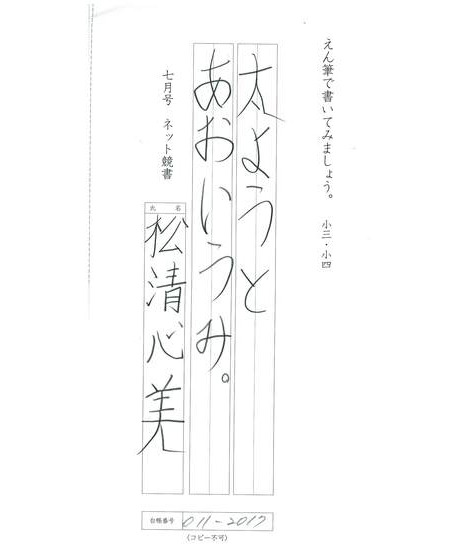 えん筆で書いてみましょう。 小三・小四
太ようと
あおいうみ。
七月号 ネット競書
氏名
松清心美
台帳番号 011-2017
(コピー不可)